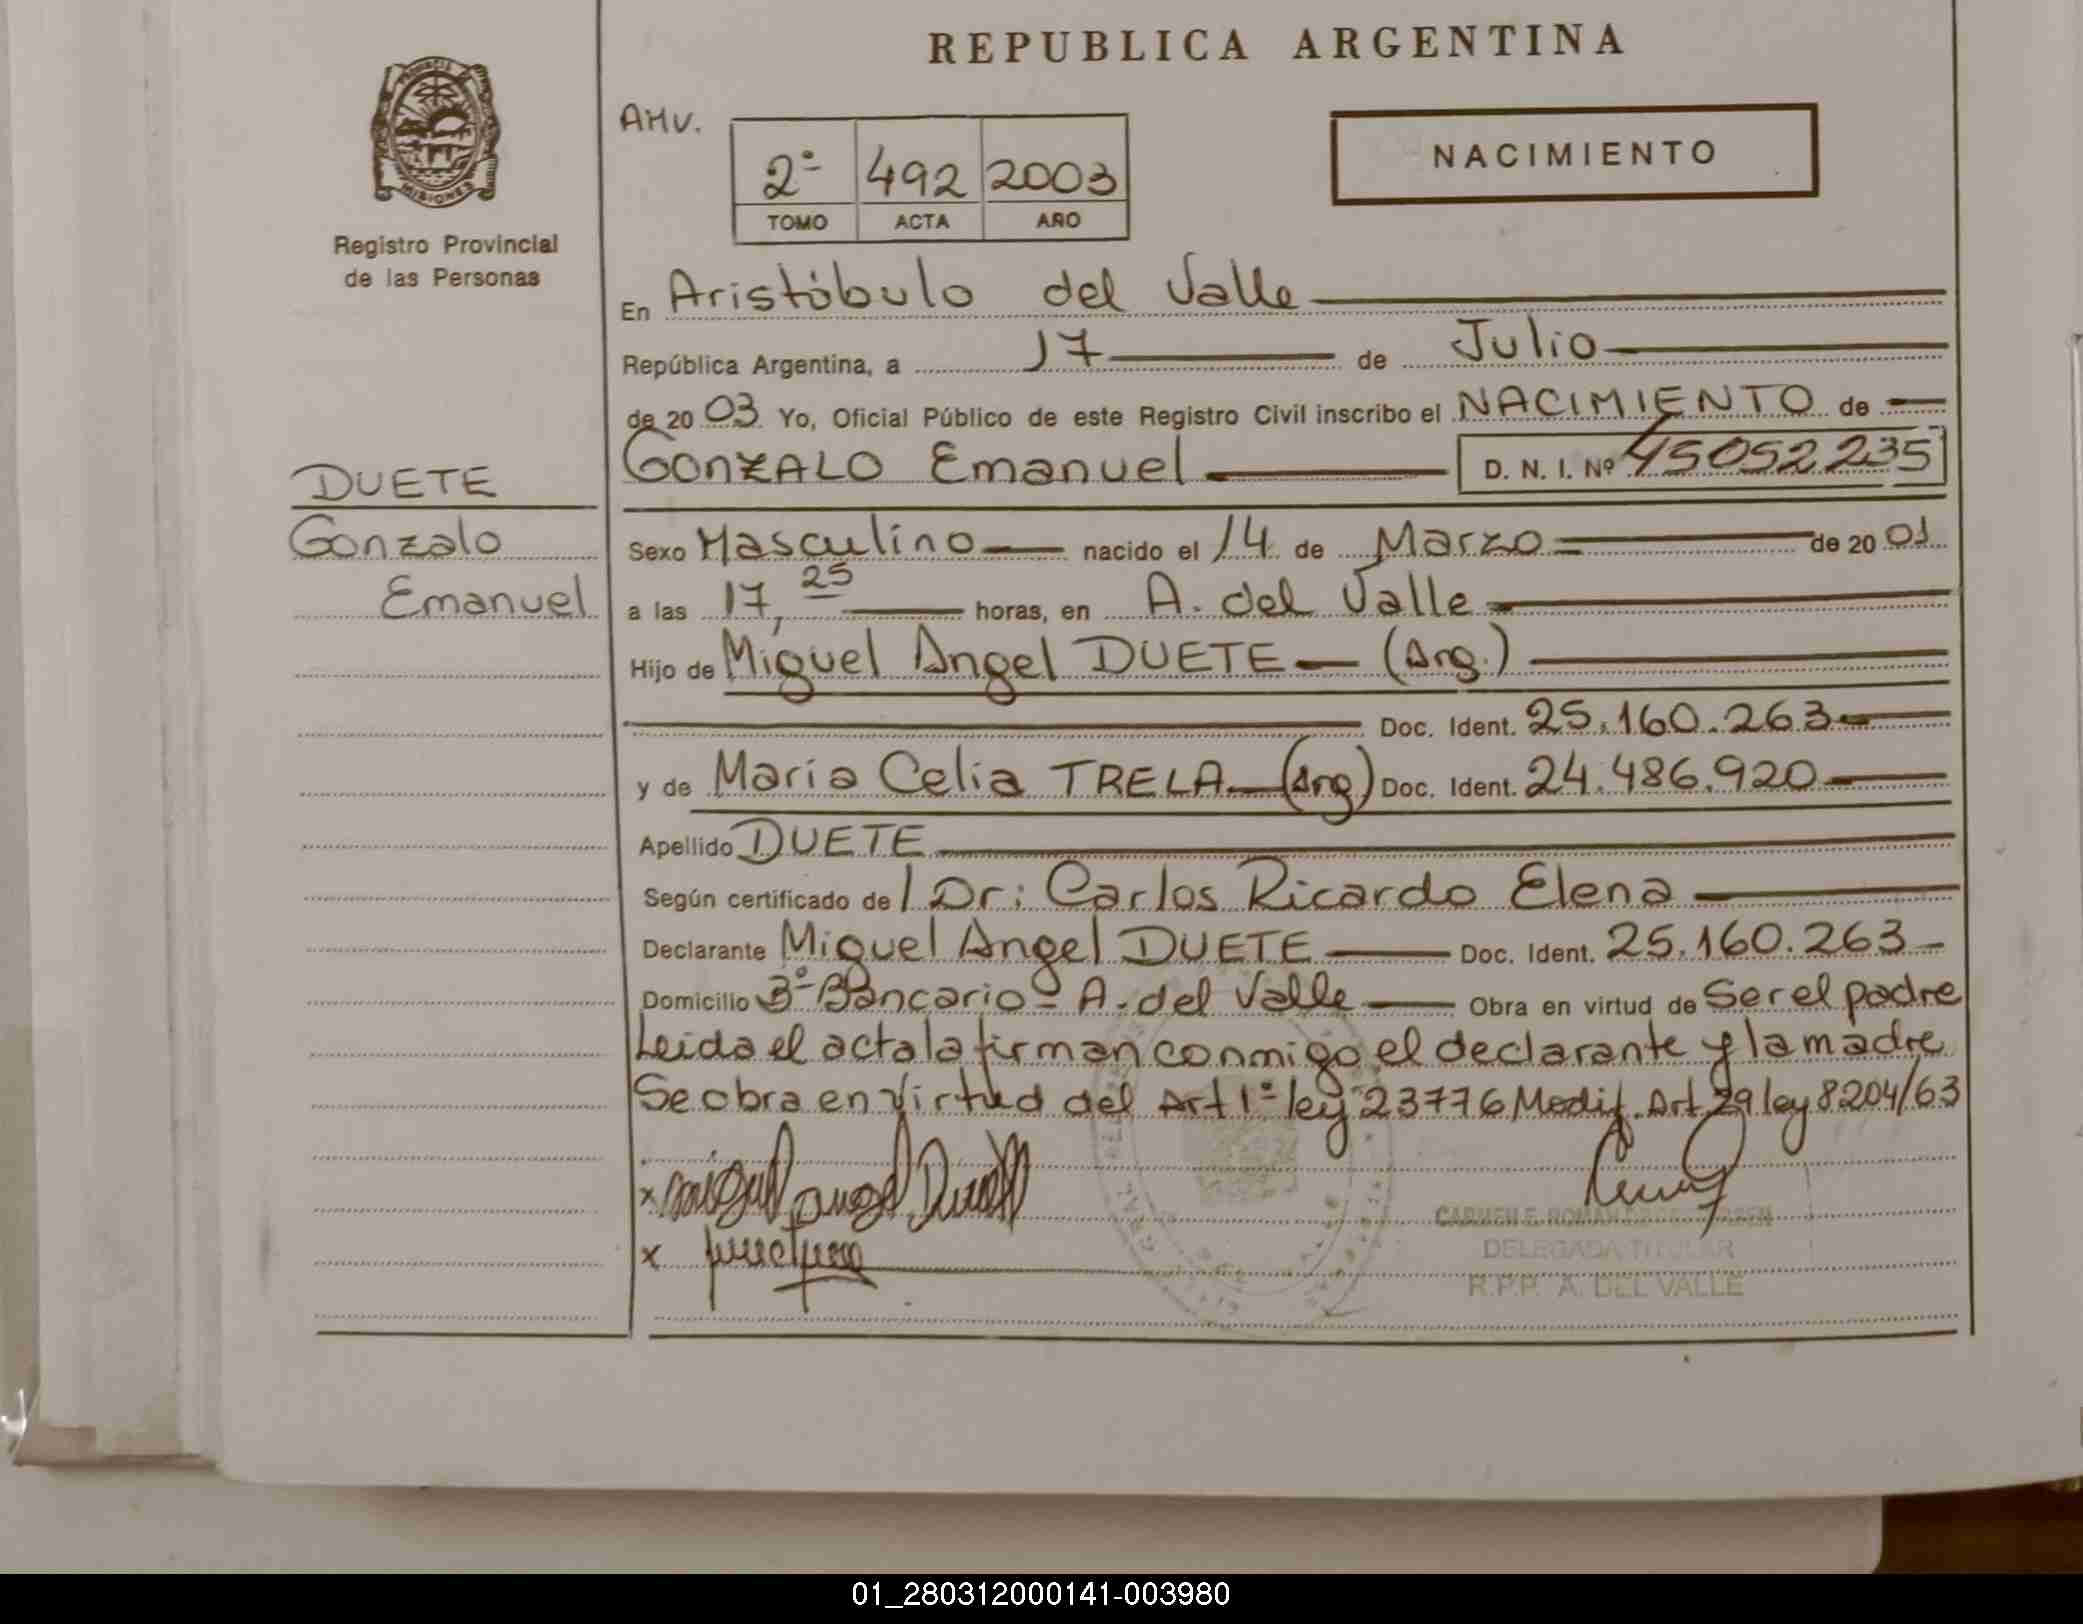 REPUBLICA ARGENTINA
PROVINCIA DE MISIONES
Registro Provincial
de las Personas
AMV.
2º 492 2003
TOMO ACTA AÑO
NACIMIENTO
En Aristóbulo del Valle
República Argentina, a 17 de Julio
de 2003 Yo, Oficial Público de este Registro Civil inscribo el NACIMIENTO de
GONZALO Emanuel D. N. I. Nº 45052235
DUETE
Gonzalo
Emanuel
Sexo Masculino nacido el 14 de Marzo de 2001
a las 17,25 horas, en A. del Valle
Hijo de Miguel Angel DUETE (Arg.)
Doc. Ident. 25.160.263
y de Maria Celia TRELA (Arg) Doc. Ident. 24.486.920
Apellido DUETE
Según certificado de Dr: Carlos Ricardo Elena
Declarante Miguel Angel DUETE Doc. Ident. 25.160.263
Domicilio Bº Bancario - A. del Valle Obra en virtud de Ser el padre
Leida el acta la firman conmigo el declarante y la madre
Se obra en virtud del Art 1º ley 23776 Modif. Art 29 ley 8204/63
x Miguel Angel Duete
x
CARMEN E. ROMAN
DELEGADA TITULAR
R.P.P. A. DEL VALLE
01_280312000141-003980